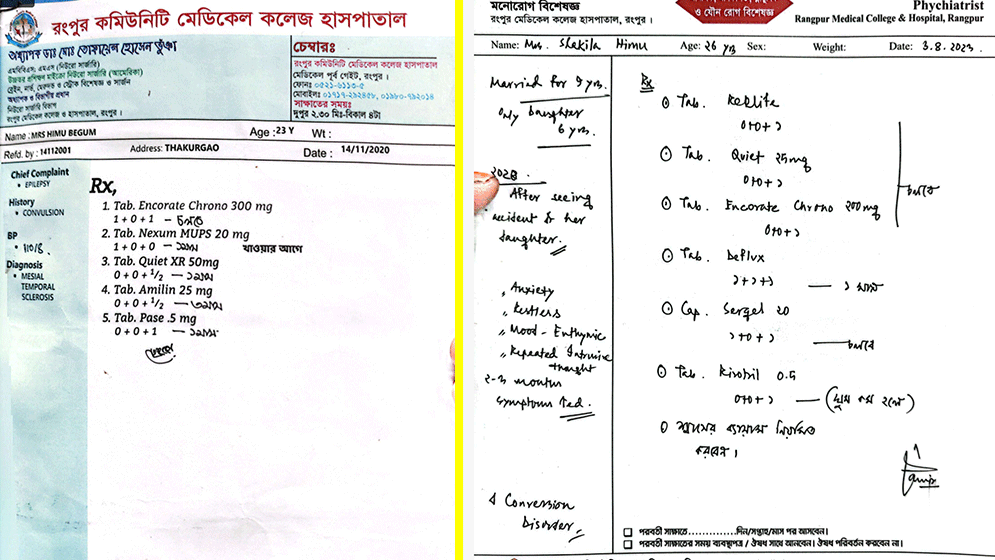 রংপুর কমিউনিটি মেডিকেল কলেজ হাসপাতাল
অধ্যাপক ডাঃ মোঃ তোফায়েল হোসেন ভূঁঞা
এমবিবিএস; এমএস (নিউরো সার্জারি)
উচ্চতর প্রশিক্ষণ মাইক্রো নিউরো সার্জারি (আমেরিকা)
ব্রেইন, নার্ভ, মেরুদন্ড ও স্ট্রোক বিশেষজ্ঞ ও সার্জন
অধ্যাপক ও বিভাগীয় প্রধান
নিউরো সার্জারি বিভাগ
রংপুর মেডিকেল কলেজ ও হাসপাতাল, রংপুর।
চেম্বারঃ
রংপুর কমিউনিটি মেডিকেল কলেজ হাসপাতাল
মেডিকেল পূর্ব গেইট, রংপুর।
ফোনঃ ০৫২১-৬১১১৩-৫
মোবাইলঃ ০১৭১৭-২৯২৪৫৮, ০১৯৮০-৭৯২০১৪
সাক্ষাতের সময়ঃ
দুপুর ২.৩০ মিঃ-বিকাল ৪টা
Name : MRS HIMU BEGUM Age : 23 Y Wt :
Refd. by : 14112001 Address: THAKURGAO Date : 14/11/2020
Chief Complaint
• EPILEPSY
History
• CONVULSION
BP
Diagnosis
• MESIAL
TEMPORAL
SCLEROSIS
Rx,
1. Tab. Encorate Chrono 300 mg
1 + 0 + 1 – চলবে
2. Tab. Nexum MUPS 20 mg
1 + 0 + 0 – ১মাস খাওয়ার আগে
3. Tab. Quiet XR 50mg
0 + 0 + 1/2 – ১মাস
4. Tab. Amilin 25 mg
0 + 0 + 1/2 – ৩মাস
5. Tab. Pase .5 mg
0 + 0 + 1 – ১মাস
মনোরোগ বিশেষজ্ঞ
রংপুর মেডিকেল কলেজ হাসপাতাল, রংপুর।
ও যৌন রোগ বিশেষজ্ঞ
Phychiatrist
Rangpur Medical College & Hospital, Rangpur
Name: Mrs. Shakila Himu Age: 26 yrs Sex: Weight: Date: 3.8.2023
Married for 9 yrs.
Only Daughter
6 yrs.
After seeing
accident of her
daughter.
Anxiety
Restless
Mood - Euthymic
Repeated Intrusive
thought
2-3 months
Symptoms
Conversion
Disorder
Rx
Tab.
০+০+১
Tab. Quiet 25mg
০+০+১
Tab. Encorate Chrono 200mg
০+০+১
চলবে
Tab. Deflux
১+১+১ — ১ মাস
Cap. Sergel 20
১+০+১ — চলবে
Tab. Rivotril 0.5
০+০+১ — (ঘুম কম হলে)
ব্যায়াম নিয়মিত
করবেন।
পরবর্তী সাক্ষাতে..............দিন/সপ্তাহ/মাস পর আসবেন।
পরবর্তী সাক্ষাতের সময় ব্যবস্থাপত্র / ঔষধ সাথে আনবেন। ঔষধ পরিবর্তন করবেন না।